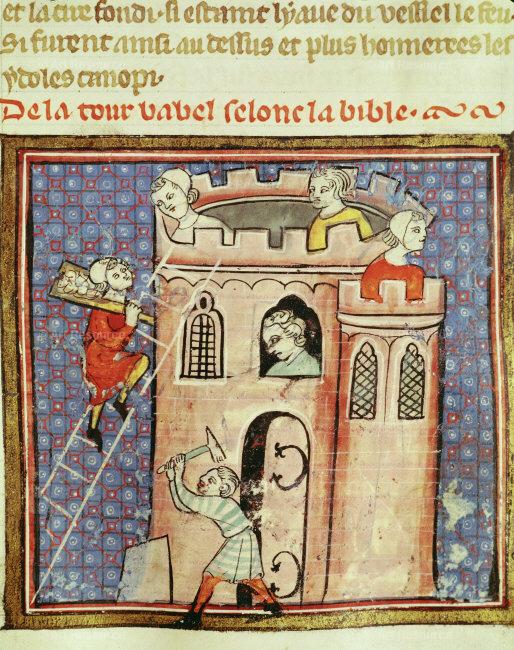 et la cire fondi. si estaint lyaue du vessiel le feu.
Si furent ainsi au dessus et plus honnerees les
ydoles canopi.
De la tour babel selonc la bible.